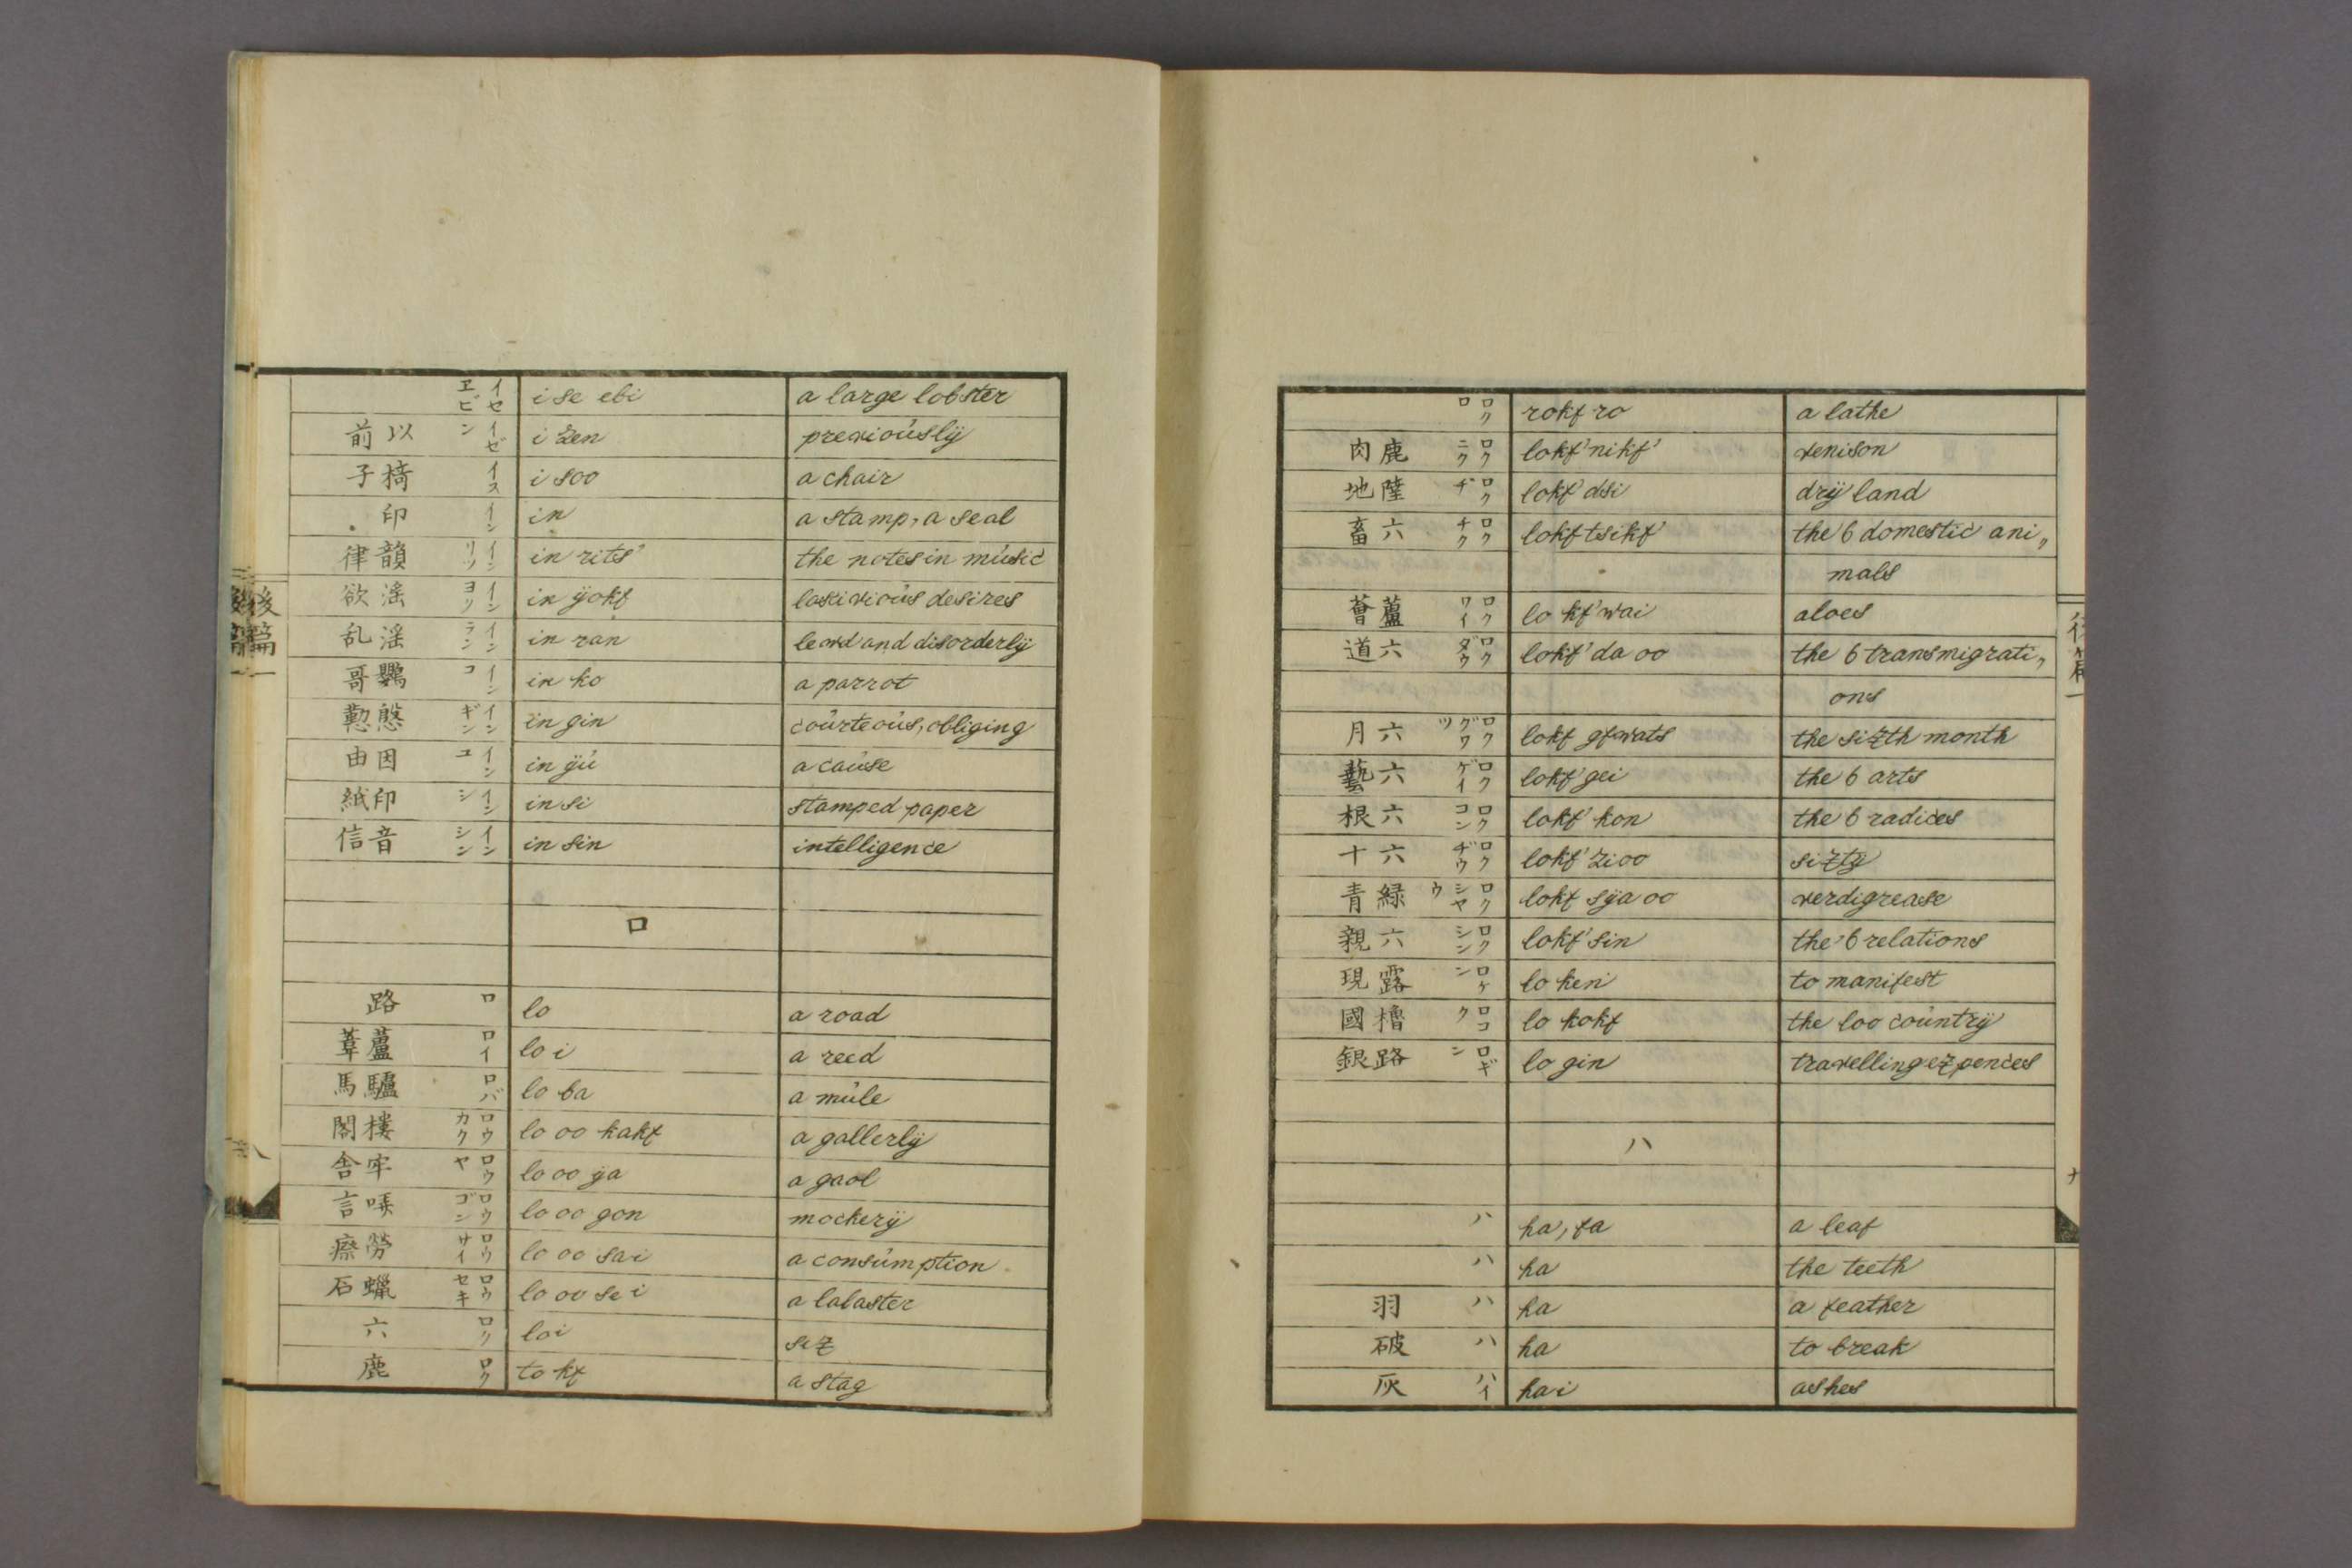 イセヱビ i se ebi a large lobster
以前 イゼン i zen previoúslÿ
椅子 イス i soo a chair
印 イン in a stamp, a seal
韻律 インリツ in rits' the notes in músic
淫欲 インヨク in ÿokf lascivioús desires
淫乱 インラン in ran lewd and disorderlÿ
鸚哥 インコ in ko a parrot
慇懃 インギン in gin coúrteoús, obliging
因由 インユ in ÿú a caúse
印紙 インシ in si stamped paper
音信 インシン in sin intelligence
ロ
路 ロ lo a road
蘆葦 ロイ lo i a reed
驢馬 ロバ lo ba a múle
樓閣 ロウカク lo oo kakf a gallerlÿ
牢舎 ロウヤ lo oo ÿa a gaol
哢言 ロウゴン lo oo gon mockerÿ
勞瘵 ロウサイ lo oo sai a consúmption
蠟石 ロウセキ lo oo sei a labaster
六 ロク loi six
鹿 ロク to kf a stag
後篇一
八
ロクロ rokf ro a lathe
鹿肉 ロクニク lokf' nikf' venison
陸地 ロクヂ lokf' dsi drÿ land
六畜 ロクチク lokf tsikf' the 6 domestic ani„
mals
蘆薈 ロクワイ lo kf' wai aloes
六道 ロクダウ lokf' da oo the 6 transmigrati„
ons
六月 ロクグワツ lokf gfwats the sixth month
六藝 ロクゲイ lokf' gei the 6 arts
六根 ロクコン lokf' kon the 6 radices
六十 ロクヂウ lokf' zi oo sixtÿ
緑青 ロクシヤウ lokf sÿa oo verdigrease
六親 ロクシン lokf' sin the 6 relations
露現 ロケン lo ken to manifest
櫓國 ロコク lo kokf the loo coúntrÿ
路銀 ロギン lo gin travelling expences
ハ
ハ ha, fa a leaf
ハ ha the teeth
羽 ハ ha a feather
破 ハ ha to break
灰 ハイ hai ashes